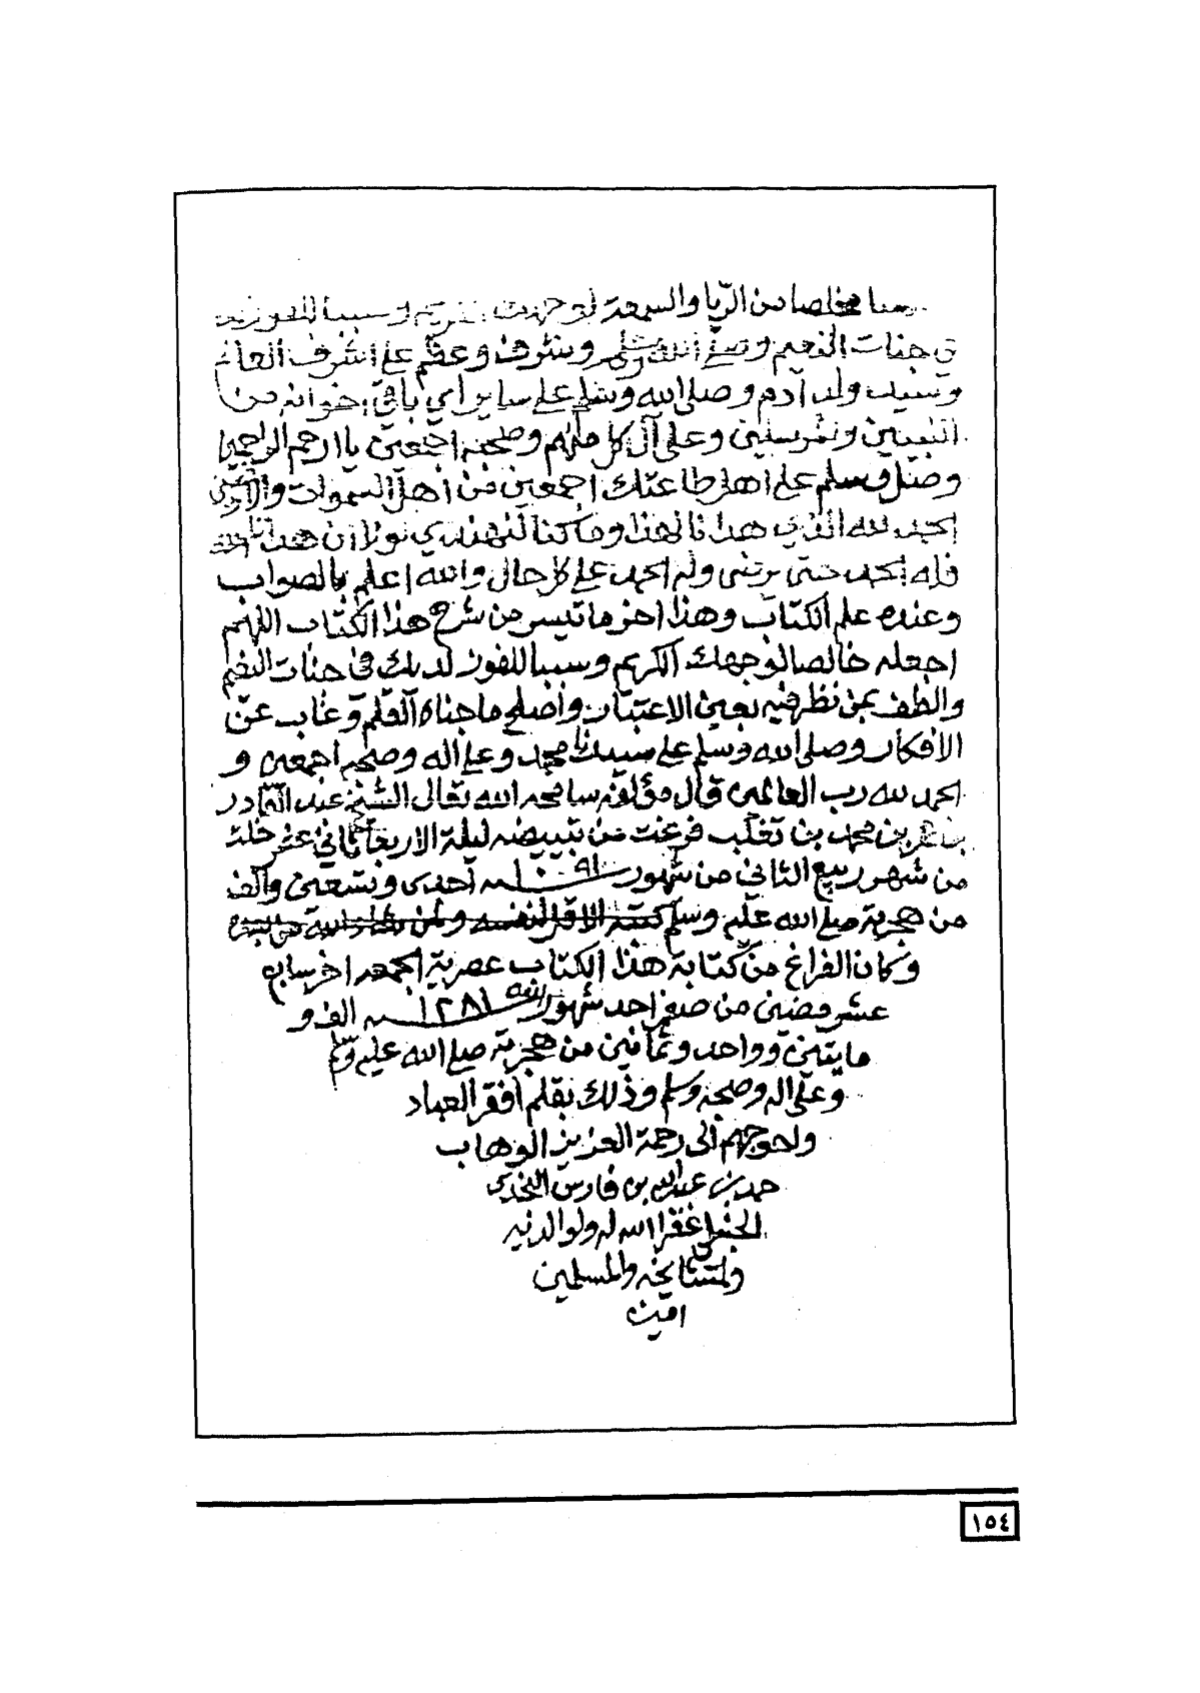 مخلصا من الريا والسمعة لوجهك الكريم وسببا للفوز
في جنات النعيم وصلى الله وسلم وشرف وعظم على اشرف العالم
وسيد ولد ادم وصلى الله وسلم على ساير اي باقي اخوانه من
النبيين والمرسلين وعلى آل كل منهم وصحبه اجمعين يا ارحم الراحمين
وصل وسلم على اهل طاعتك اجمعين من اهل السموات والارضين
الحمد لله الذي هدانا لهذا وما كنا لنهتدي لولا ان هدانا الله
فله الحمد حتى يرضى وله الحمد على كل حال والله اعلم بالصواب
وعنده علم الكتاب وهذا اخر ما تيسر من شرح هذا الكتاب اللهم
اجعله خالصا لوجهك الكريم وسببا للفوز لديك في جنات النعيم
والطف بمن نظر فيه بعين الاعتبار واصلح ما جناه القلم وغاب عن
الافكار وصلى الله وسلم على سيدنا محمد وعلى اله وصحبه اجمعين و
الحمد لله رب العالمين قال مؤلفه سامحه الله تعالى الشيخ عبد القادر
بن عمر بن محمد بن تغلب فرغت من تبييضه ليلة الاربعا ثاني عشر خلت
من شهر ربيع الثاني من شهور سنة ١٠٩١ احدى وتسعين والف
من هجرته صلى الله عليه وسلم كتبه الاقل لنفسه ولمن شاء الله من بعده
وكان الفراغ من كتابة هذا الكتاب عصرية الجمعه اخر سابع
عشر مضين من صفر احد شهور سنة ١٢٨١ الف و
مايتين وواحد وثمانين من هجرته صلى الله عليه وسلم
وعلى اله وصحبه وسلم وذلك بقلم افقر العباد
واحوجهم الى رحمة العزيز الوهاب
حمد بن عبدالله بن فارس النجدي
الحنبلي غفر الله له ولوالديه
ولمشايخه والمسلمين
امين
١٥٤